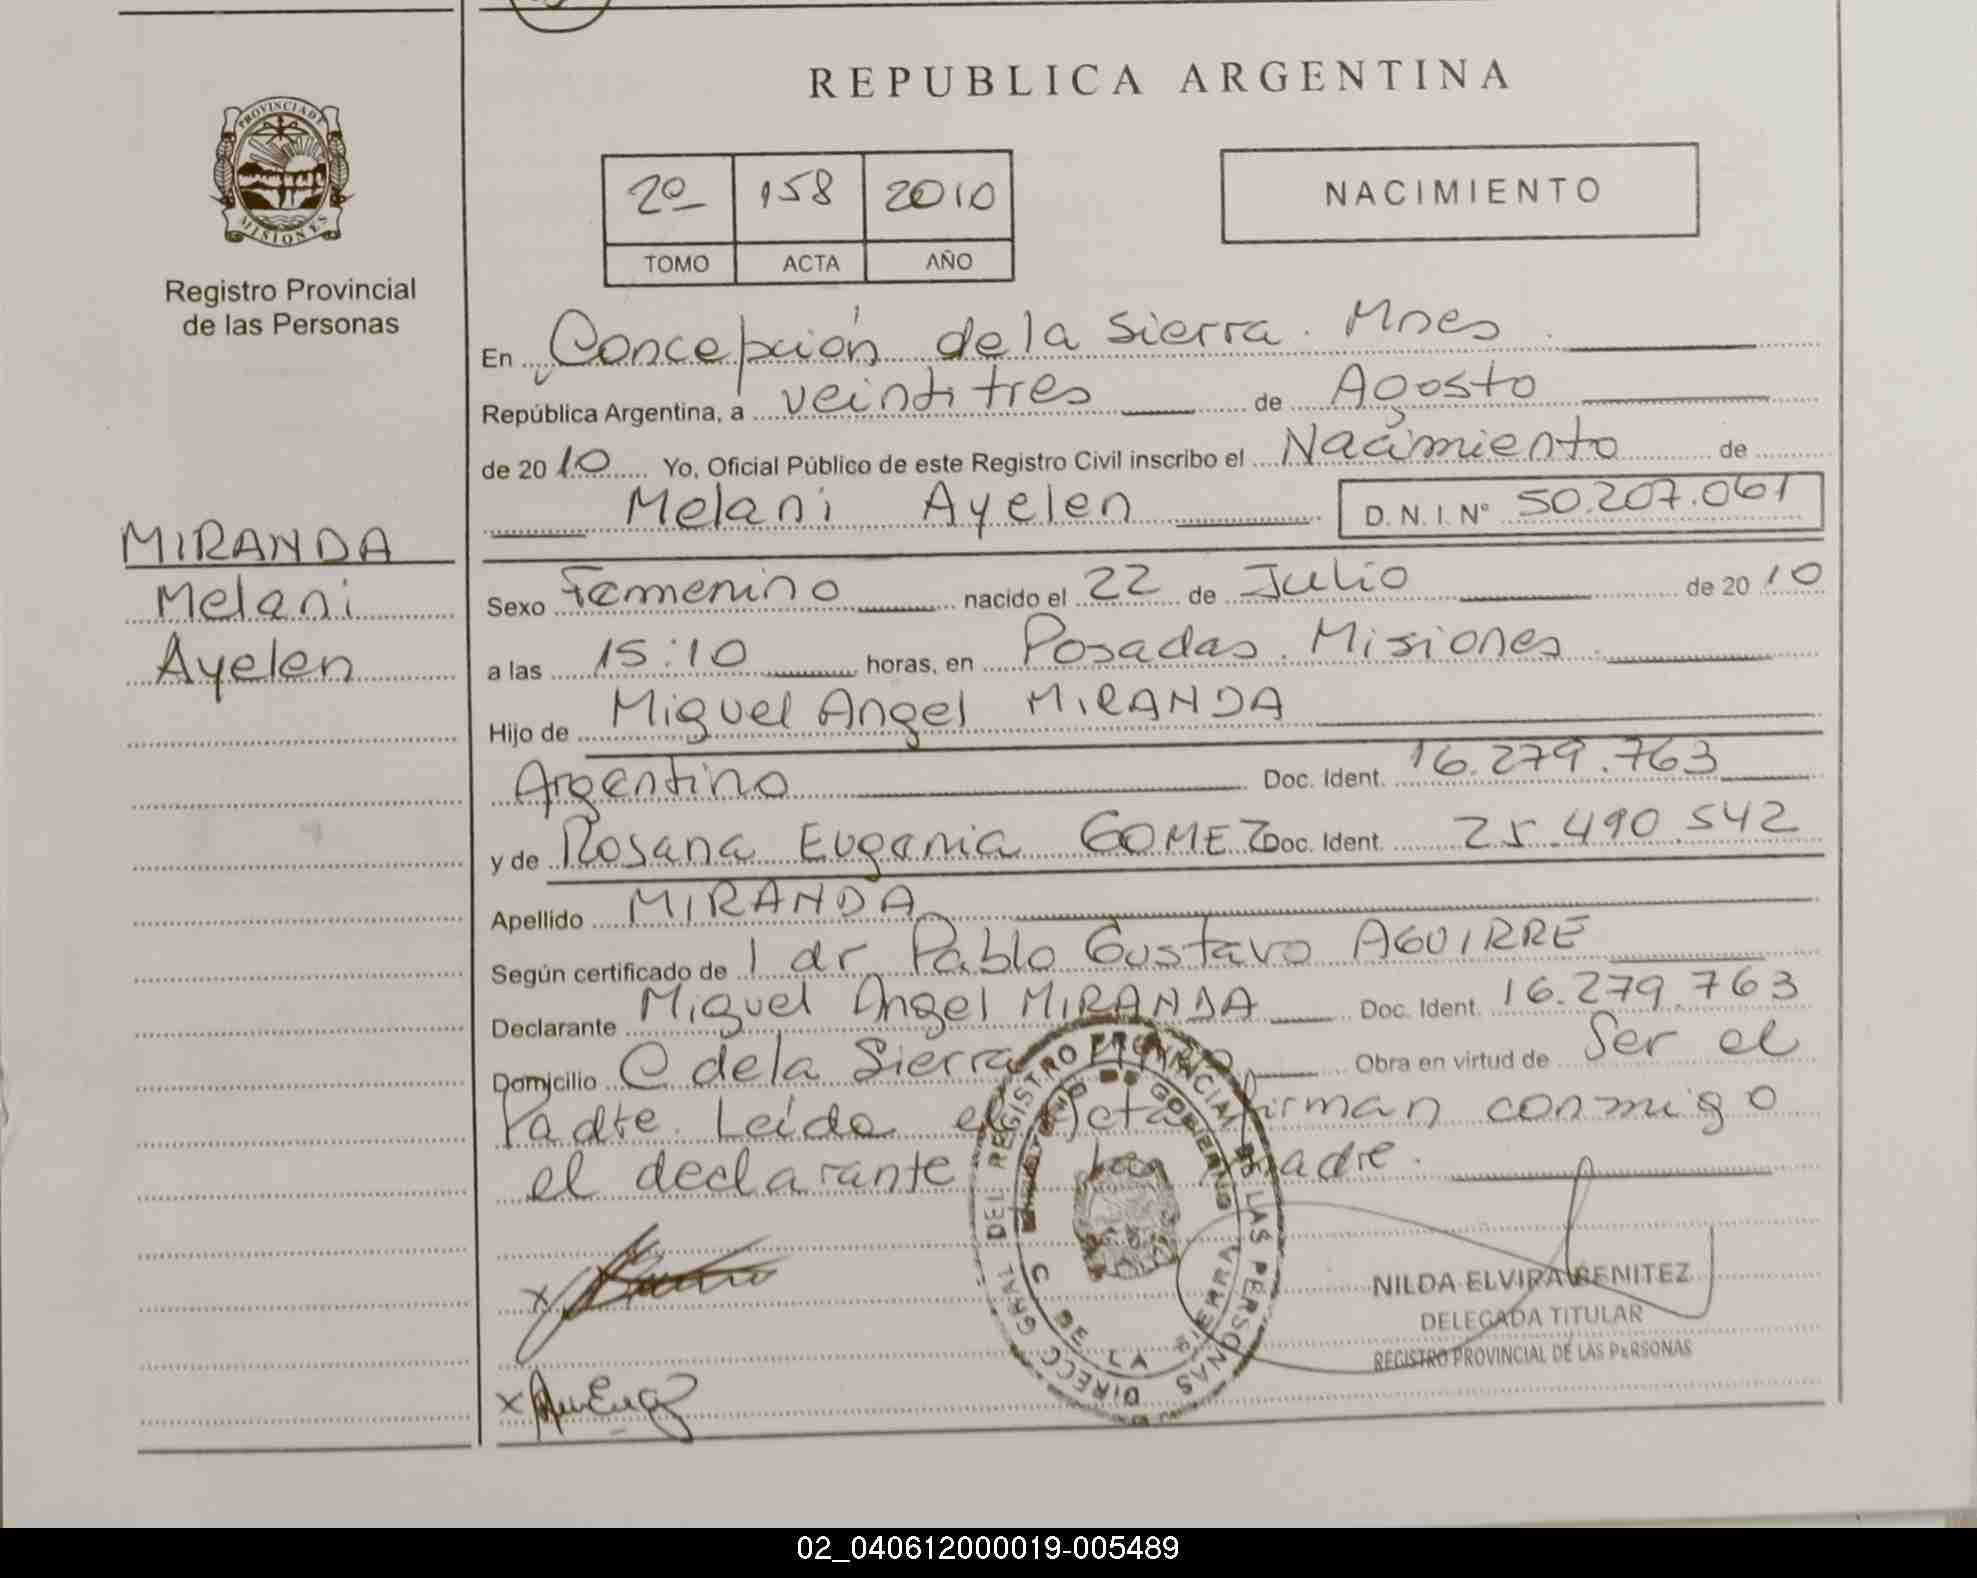 REPUBLICA ARGENTINA
PROVINCIA DE MISIONES
Registro Provincial
de las Personas
2º 158 2010
TOMO ACTA AÑO
NACIMIENTO
En Concepción de la Sierra. Mnes.
República Argentina, a veintitres de Agosto
de 2010 Yo, Oficial Público de este Registro Civil inscribo el Nacimiento de
Melani Ayelen D.N.I. Nº 50.207.061
MIRANDA
Melani
Ayelen
Sexo Femenino nacido el 22 de Julio de 2010
a las 15:10 horas, en Posadas. Misiones.
Hijo de Miguel Angel MIRANDA
Argentino Doc. Ident. 16.279.763
y de Rosana Eugenia GOMEZ Doc. Ident. 25.490.542
Apellido MIRANDA
Según certificado de 1 dr Pablo Gustavo AGUIRRE
Declarante Miguel Angel MIRANDA Doc. Ident. 16.279.763
Domicilio C de la Sierra Obra en virtud de Ser el
Padre. Leída el Acta firman conmigo
el declarante madre.
DIRECC. GRAL. DEL REGISTRO PROVINCIAL DE LAS PERSONAS
GOBIERNO
C DE LA SIERRA
NILDA ELVIRA BENITEZ
DELEGADA TITULAR
REGISTRO PROVINCIAL DE LAS PERSONAS
02_040612000019-005489